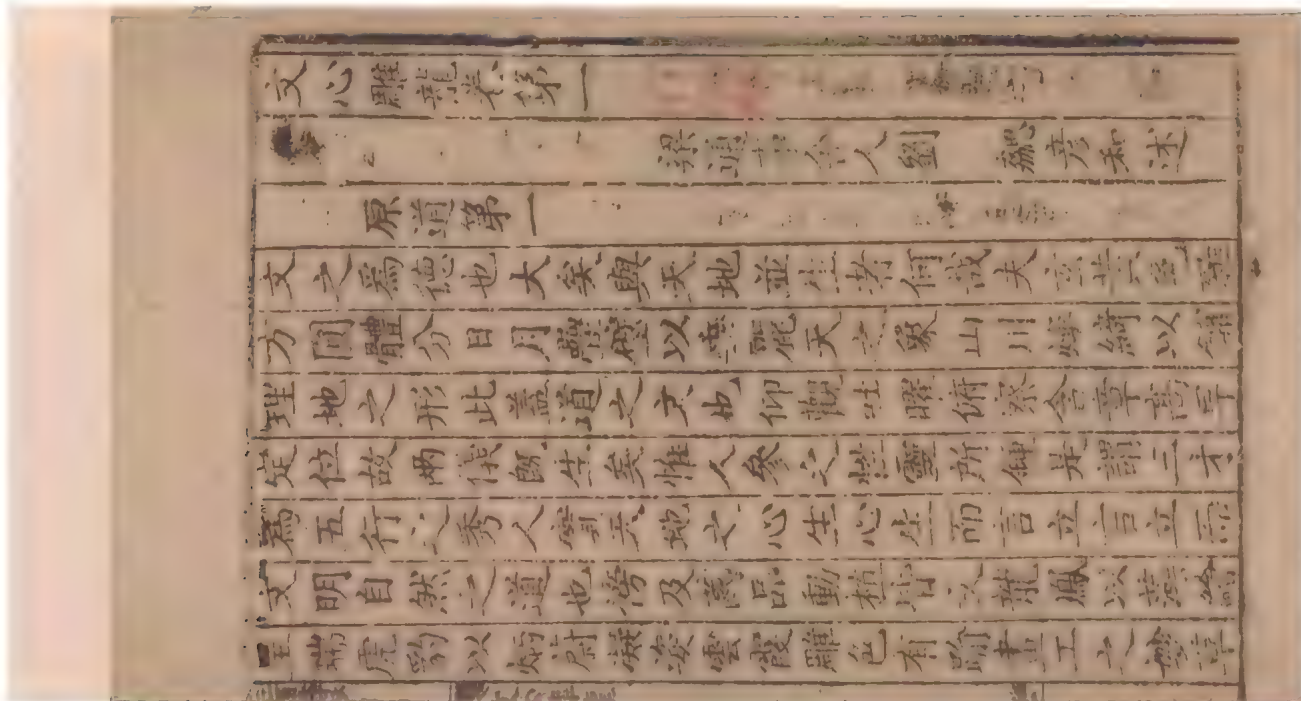 文心雕龍卷第一
梁通事舍人劉 勰彥和述
原道第一
文之爲德也大矣與天地並生者何哉夫玄黃色雜
方圓體分日月疊璧以垂麗天之象山川煥綺以鋪
理地之形此蓋道之文也仰觀吐曜俯察含章高卑
定位故兩儀既生矣惟人參之性靈所鍾是謂三才
爲五行之秀人實天地之心生心生而言立言立而
文明自然之道也傍及萬品動植皆文龍鳳以藻繪
呈瑞虎豹以炳蔚凝姿雲霞雕色有踰畫工之妙草